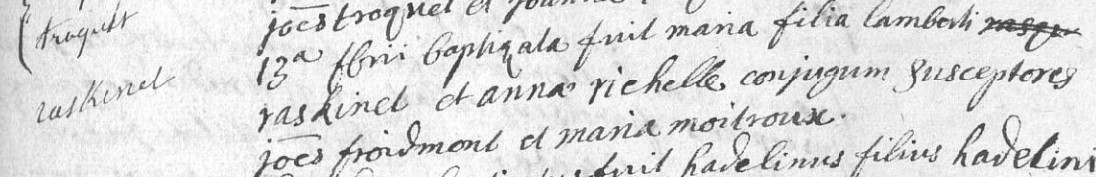 joēs troquet et
troquet
13ª fbrii baptizata fuit maria filia lamberti
raskinet
raskinet et anna richelle conjugum susceptores
joēs froidmont et maria moitroux.
fuit hadelinus filius hadelini